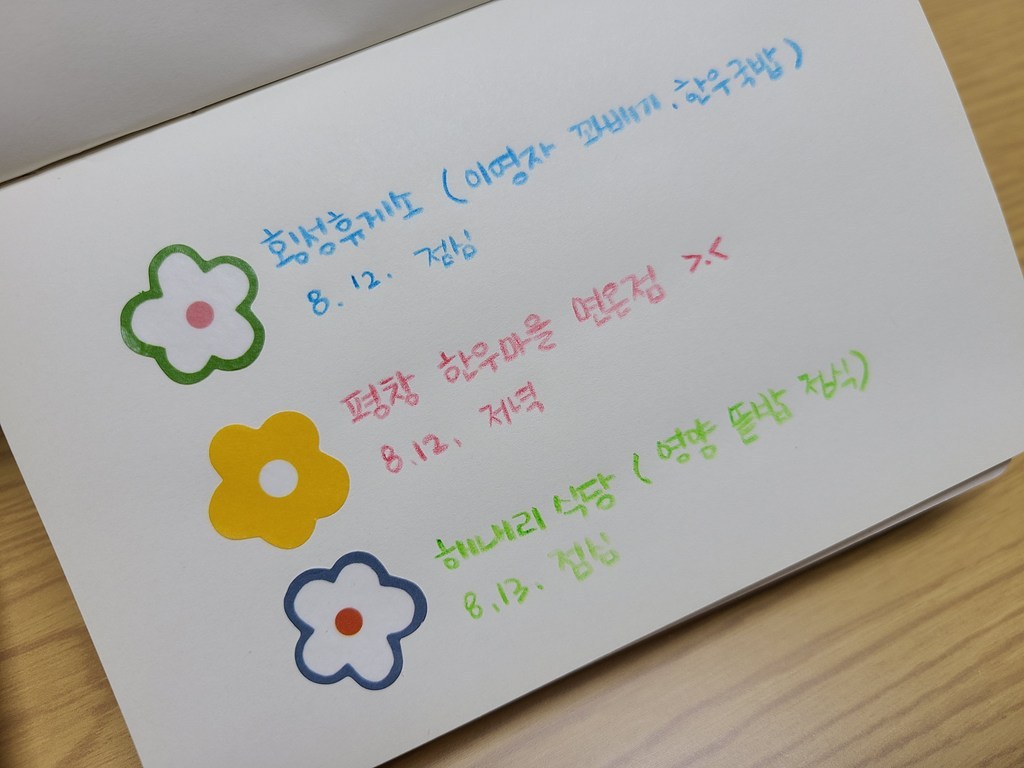 횡성휴게소 (이영자 꽈배기. 한우국밥)
8.12. 점심
평창 한우마을 면온점 >.<
8.12. 저녁
해내리 식당 (영양 뜰밥 정식)
8.13. 점심